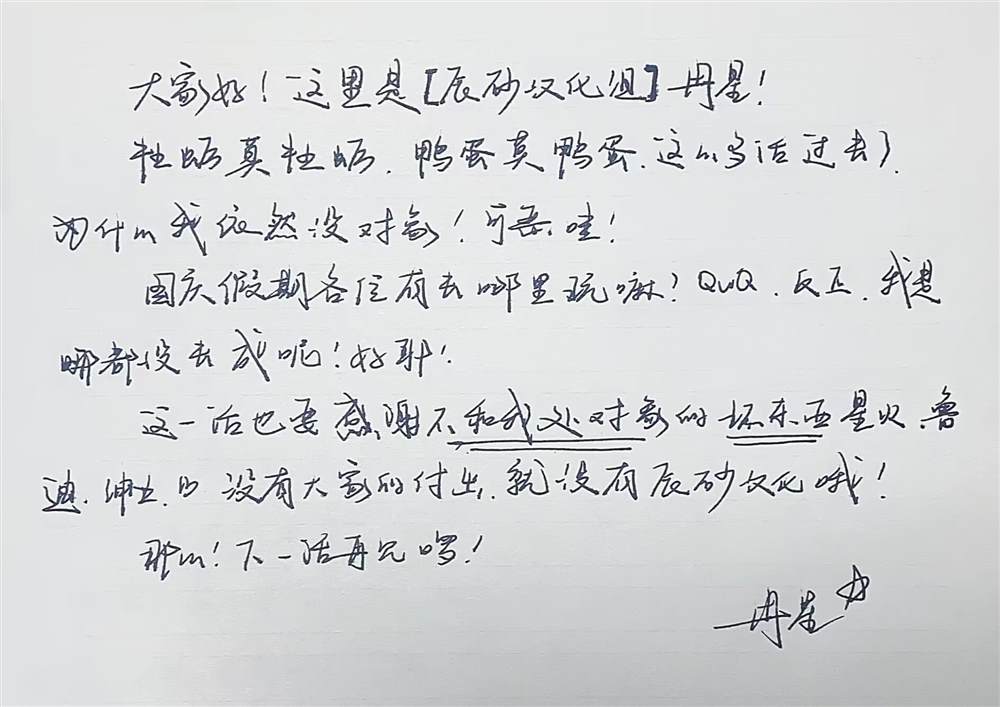 大家好！这里是[辰砂汉化组]冉星！
牡蛎莫牡蛎、鸭蛋莫鸭蛋、这么多话过去了、
为什么我依然没对象！可恶哇！
国庆假期各位有去哪里玩嘛？QwQ、反正、我是
哪都没去成呢！好耶！
这一话也要感谢不和我处对象的坏东西星火、鲁
迪、绅士、B 没有大家的付出、就没有辰砂汉化哦！
那么！下一话再见啰！
冉星